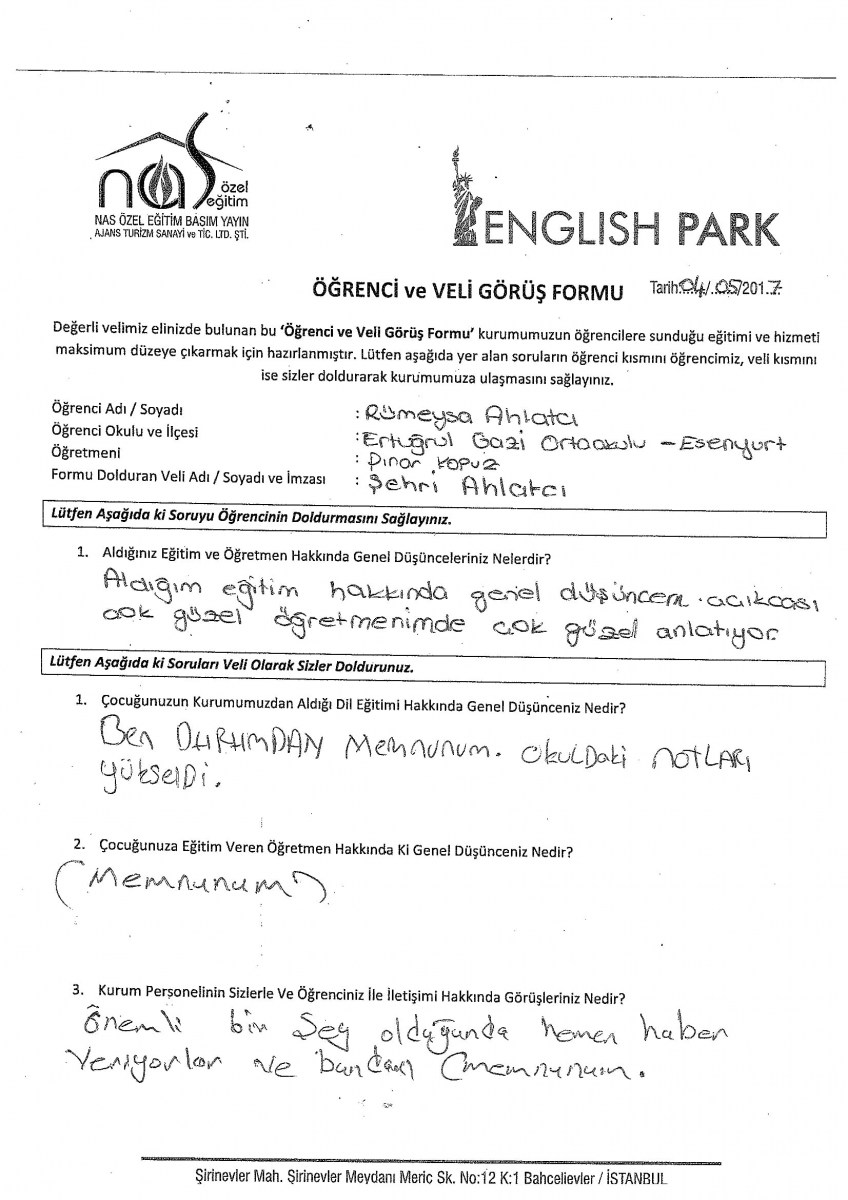 nas özel eğitim
NAS ÖZEL EĞİTİM BASIM YAYIN
AJANS TURİZM SANAYİ ve TİC. LTD. ŞTİ.
ENGLISH PARK
ÖĞRENCİ ve VELİ GÖRÜŞ FORMU Tarih:04/.05/2017
Değerli velimiz elinizde bulunan bu ‘Öğrenci ve Veli Görüş Formu’ kurumumuzun öğrencilere sunduğu eğitimi ve hizmeti
maksimum düzeye çıkarmak için hazırlanmıştır. Lütfen aşağıda yer alan soruların öğrenci kısmını öğrencimiz, veli kısmını
ise sizler doldurarak kurumumuza ulaşmasını sağlayınız.
Öğrenci Adı / Soyadı : Rümeysa Ahlatcı
Öğrenci Okulu ve İlçesi : Ertuğrul Gazi Ortaokulu - Esenyurt
Öğretmeni : Pınar KOPUZ
Formu Dolduran Veli Adı / Soyadı ve İmzası : Şehri Ahlatcı
Lütfen Aşağıda ki Soruyu Öğrencinin Doldurmasını Sağlayınız.
1. Aldığınız Eğitim ve Öğretmen Hakkında Genel Düşünceleriniz Nelerdir?
Aldığım eğitim hakkında genel düşüncem açıkcası
çok güzel öğretmenimde çok güzel anlatıyor
Lütfen Aşağıda ki Soruları Veli Olarak Sizler Doldurunuz.
1. Çocuğunuzun Kurumumuzdan Aldığı Dil Eğitimi Hakkında Genel Düşünceniz Nedir?
Ben DURUMDAN Memnunum. OKULDaki NOTLARI
YÜKSELDİ.
2. Çocuğunuza Eğitim Veren Öğretmen Hakkında Ki Genel Düşünceniz Nedir?
(Memnunum)
3. Kurum Personelinin Sizlerle Ve Öğrenciniz İle İletişimi Hakkında Görüşleriniz Nedir?
Önemli bir Şey olduğunda hemen haber
Veriyorlar ve bundan memnunum.
Şirinevler Mah. Şirinevler Meydanı Meric Sk. No:12 K:1 Bahcelievler / İSTANBUL